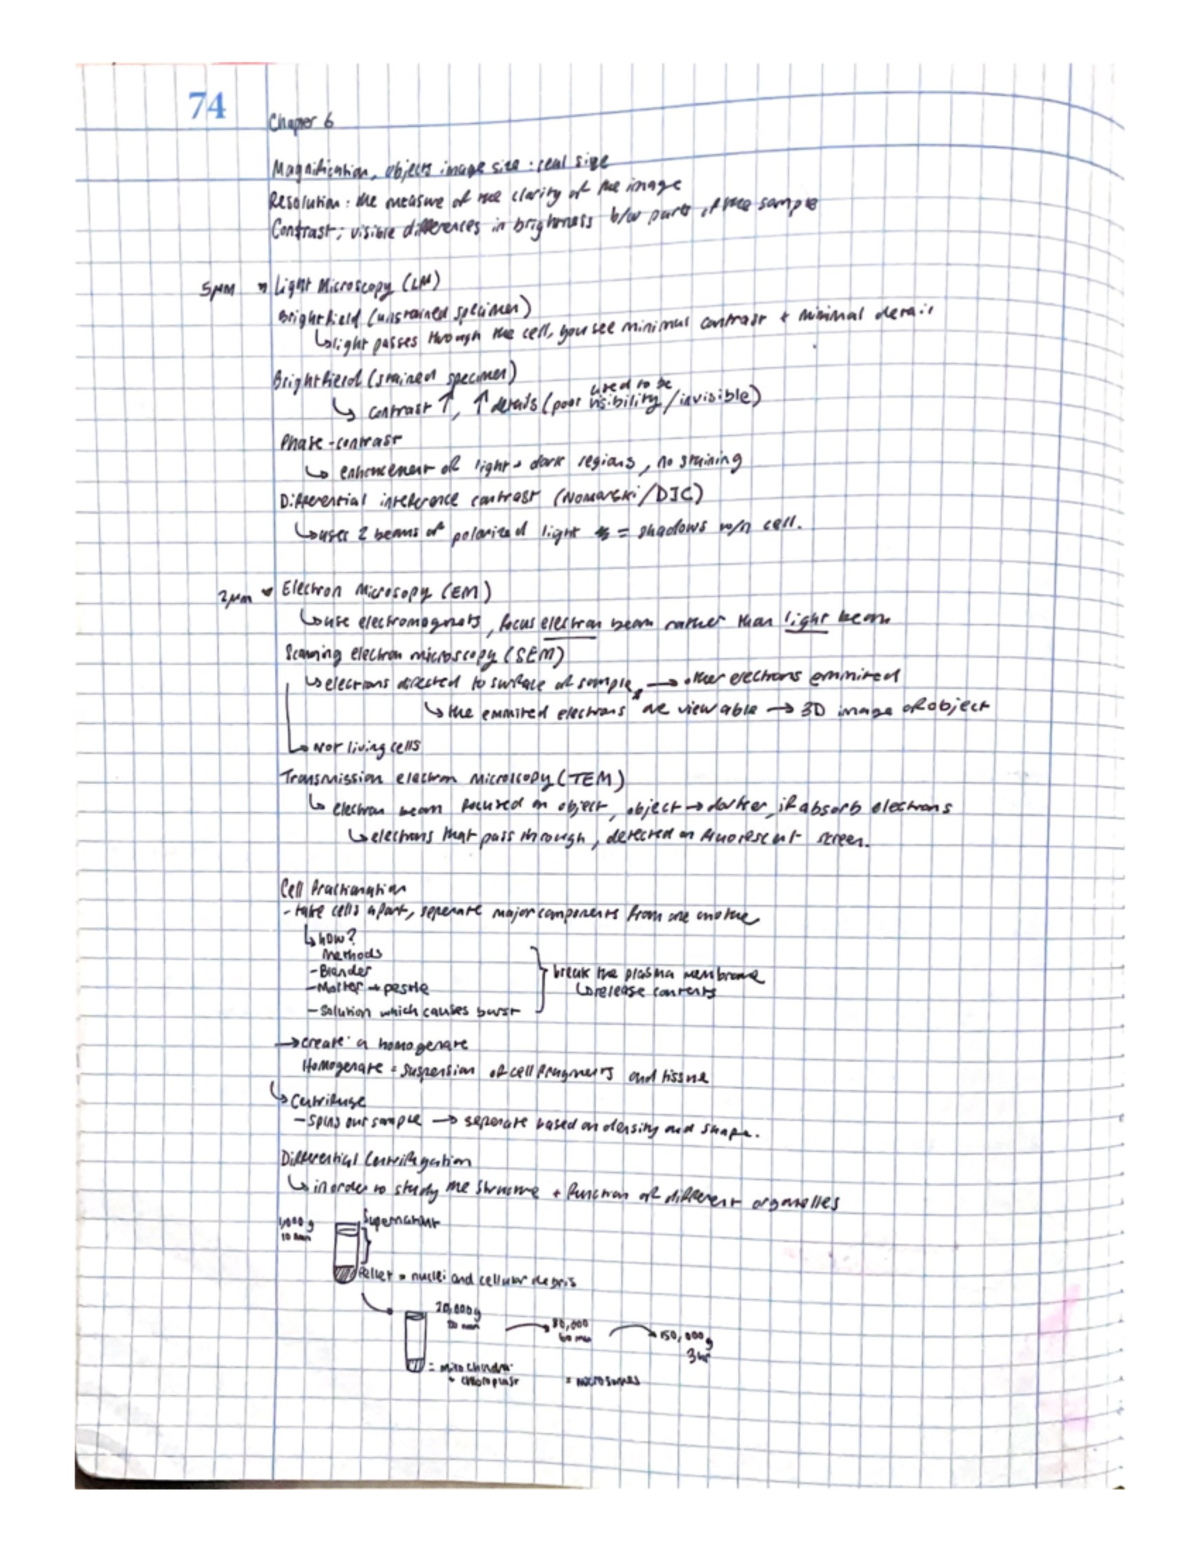 74
Chapter 6
Magnification, objects image size : real size
Resolution : the measure of the clarity of the image
Contrast; visible differences in brightness b/w parts of the sample
5μm → Light Microscopy (LM)
Brightfield (unstained specimen)
↳ light passes through the cell, you see minimal contrast + minimal detail
Brightfield (stained specimen)
used to be
↳ contrast ↑, ↑ details (poor visibility/invisible)
Phase-contrast
↳ enhancement of light + dark regions, no staining
Differential inteference contrast (Nomarski/DIC)
↳ uses 2 beams of polarized light = shadows w/n cell.
2μm → Electron Microsopy (EM)
↳ use electromagnets, focus electron beam rather than light beam
Scanning electron microscopy (SEM)
↳ electrons directed to surface of sample, → other electrons emmited
↳ the emmited electrons are viewable → 3D image of object
↳ Not living cells
Transmission electron microscopy (TEM)
↳ electron beam focused on object, object → darker, if absorb electrons
↳ electrons that pass through, detected on fluorescent screen.
Cell fractionation
- take cells apart, seperate major components from one another
↳ how?
Methods
- Blender
- Morter + pestle
- Solution which causes burst
break the plasma membrane
↳ release contents
→ create a homogenate
Homogenate = suspension of cell fragments and tissue
↳ Centrifuge
- spins our sample → seperate based on density and shape.
Differential Centrifugation
↳ in order to study the structure + function of different organelles
1,000g
10 min
Supernatant
Pellet = nuclei and cellular debris
20,000g
20 min
80,000
60 min
150,000g
3hr
= mitochondria
+ chloroplast
= microsomes